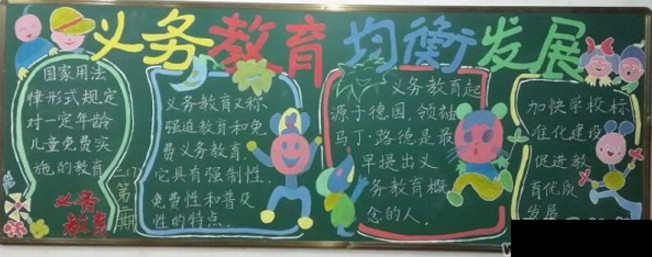 义务教育均衡发展
国家用法
律形式规定
对一定年龄
儿童免费实
施的教育
义务
教育
第
期
义务教育又称
强迫教育和免
费义务教育.
它具有强制性,
免费性和普及
性的特点.
义务教育起
源于德国,领袖
马丁·路德是最
早提出义
务教育概
念的人.
加快学校标
准化建设
促进教
育优质
发展